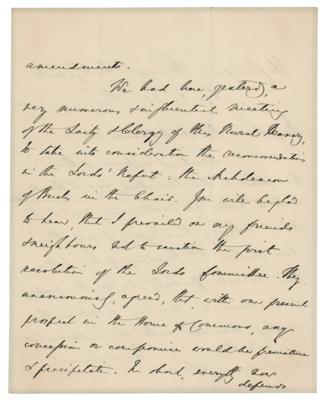 amendments.
We had here, yesterday, a
very numerous & influential meeting
of the Laity & Clergy of this Rural Deanery,
to take into consideration the recommendations
in the Lords' Report: the Archdeacon
of Bucks in the Chair. You will be glad
to hear that I prevailed on my friends
& neighbours not to sanction the first
resolution of the Lords Committee. They
unanimously agreed, that, with our present
prospect in the House of Commons, any
concession or compromise would be premature
& precipitate. In short, everything now
depends